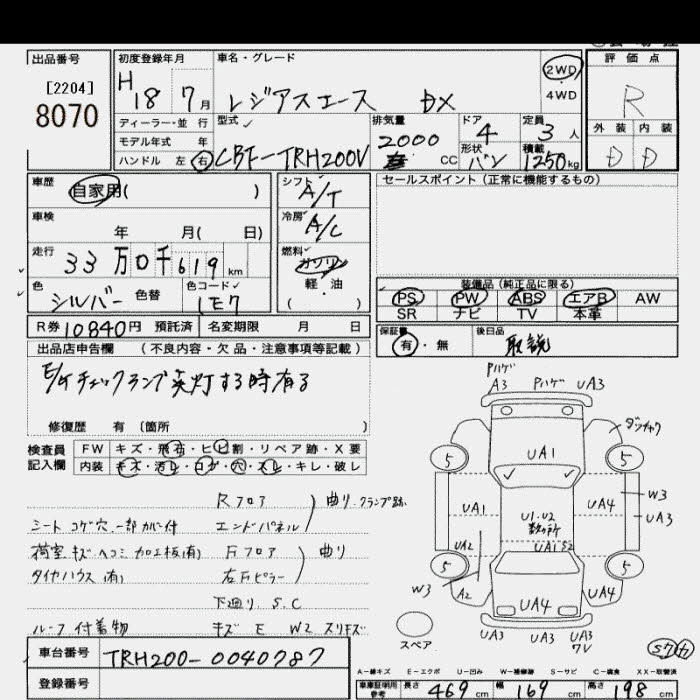 出品番号
[2204]
8070
初度登録年月
H 18 7月
車名・グレード
レジアスエース DX
2WD
4WD
評価点
R
外装 内装
D D
ディーラー・並行
モデル年式 年
ハンドル 左 右
型式
CBF-TRH200V
排気量
2000 CC
ドア
4
形状
バン
定員
3人
積載
1250kg
車歴
自家用( )
車検
年 月( 日)
走行
33万0千619km
色
シルバー 色替
色コード
1E7
シフト
A/T
冷房
A/C
燃料
ガソリン
軽油
( )
セールスポイント(正常に機能するもの)
装備品(純正品に限る)
PS PW ABS エアB AW
SR ナビ TV 本革
R券 10840円 預託済 名変期限 月 日
保証書
有・無
後日品
取説
出品店申告欄 (不良内容・欠品・注意事項等記載)
E/gチェックランプ点灯する時有る
修復歴 有 (箇所 )
検査員
記入欄
FW キズ・飛石・ヒビ割・リペア跡・X要
内装 キズ・汚レ・コゲ・穴・スレ・キレ・破レ
Rフロア
シート コゲ穴 一部カバー付 エンドパネル 曲り クランプ跡
荷室キズ ヘコミ 加工板(有) Fフロア 曲り
タイヤハウス(有) 右Fピラー
下廻り S.C
ルーフ 付着物 キズ E W2 スリキズ
車台番号
TRH200-0040787
登録番号
Pハゲ
A3 Pハゲ UA3
5 UA1 5
UA1 U1.U2 UA4 W3
数ヶ所 UA3
UA2 UA1 S2
5 5
W3 A2 UA4 UA4
スペア
UA3 UA3 UA3
A-線キズ E-エクボ U-凹み W-補修跡 S-サビ C-腐食 XX-取替済
車庫証明用
参考
長さ 469cm 幅 169cm 高さ 198cm